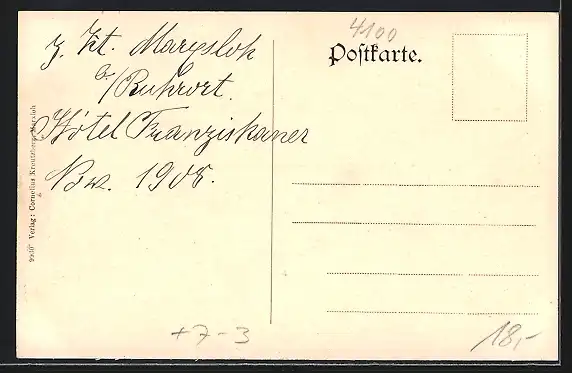 z. Zt. Marxloh
b/Ruhrort.
Hôtel Franziskaner
Nov. 1908.
4100
Postkarte.
9930 Verlag: Cornelius Kreutzberg, Marxloh
+7-3
18,-